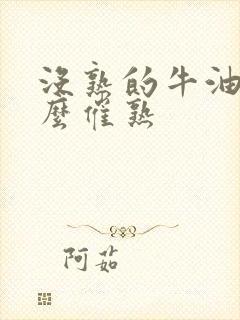 没熟的牛油
麼催熟
阿茹